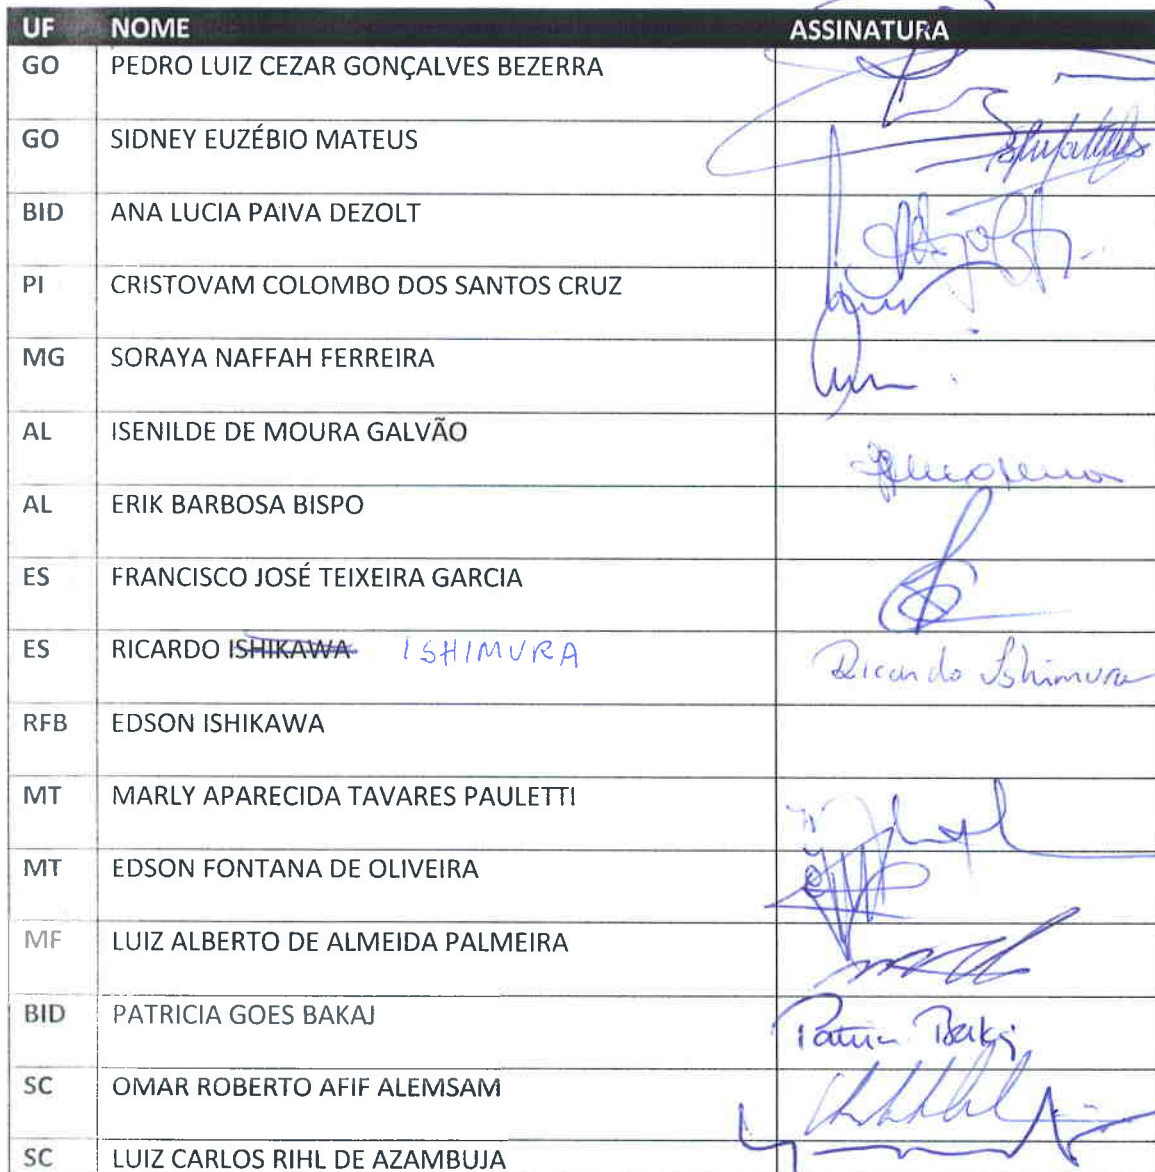 UF NOME ASSINATURA
GO PEDRO LUIZ CEZAR GONÇALVES BEZERRA
GO SIDNEY EUZÉBIO MATEUS
BID ANA LUCIA PAIVA DEZOLT
PI CRISTOVAM COLOMBO DOS SANTOS CRUZ
MG SORAYA NAFFAH FERREIRA
AL ISENILDE DE MOURA GALVÃO
AL ERIK BARBOSA BISPO
ES FRANCISCO JOSÉ TEIXEIRA GARCIA
ES RICARDO ISHIKAWA ISHIMURA Ricardo Ishimura
RFB EDSON ISHIKAWA
MT MARLY APARECIDA TAVARES PAULETTI
MT EDSON FONTANA DE OLIVEIRA
MF LUIZ ALBERTO DE ALMEIDA PALMEIRA
BID PATRICIA GOES BAKAJ
SC OMAR ROBERTO AFIF ALEMSAM
SC LUIZ CARLOS RIHL DE AZAMBUJA